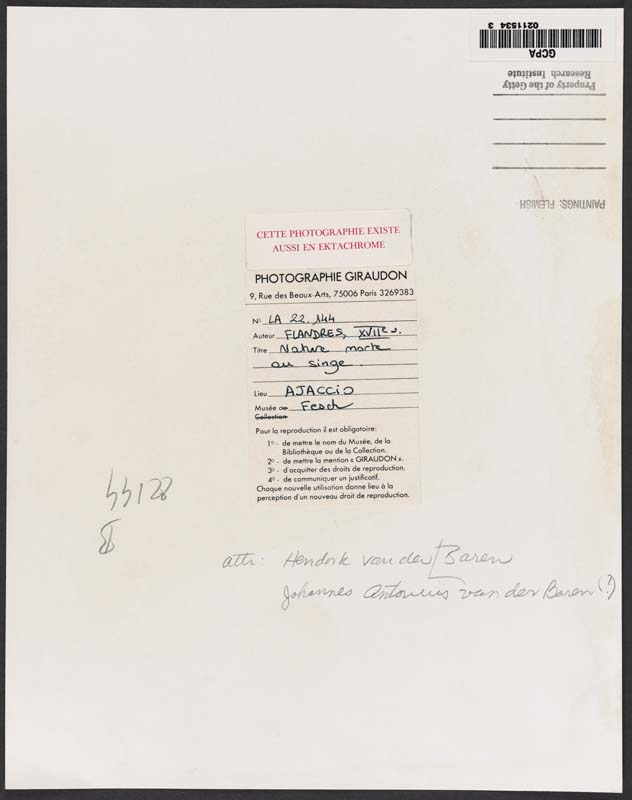 0211534 3
GCPA
Property of the Getty
Research Institute
PAINTINGS: FLEMISH
CETTE PHOTOGRAPHIE EXISTE
AUSSI EN EKTACHROME
PHOTOGRAPHIE GIRAUDON
9, Rue des Beaux-Arts, 75006 Paris 3269383
N° LA 22.144
Auteur FLANDRES, XVIIe s.
Titre Nature morte
au singe.
Lieu AJACCIO
Musée ou Fesch
Collection
Pour la reproduction il est obligatoire:
1° - de mettre le nom du Musée, de la
Bibliothèque ou de la Collection.
2° - de mettre la mention « GIRAUDON ».
3° - d'acquitter des droits de reproduction.
4° - de communiquer un justificatif.
Chaque nouvelle utilisation donne lieu à la
perception d'un nouveau droit de reproduction.
attr. Hendrik van der Baren
Johannes Antonius van der Baren (?)